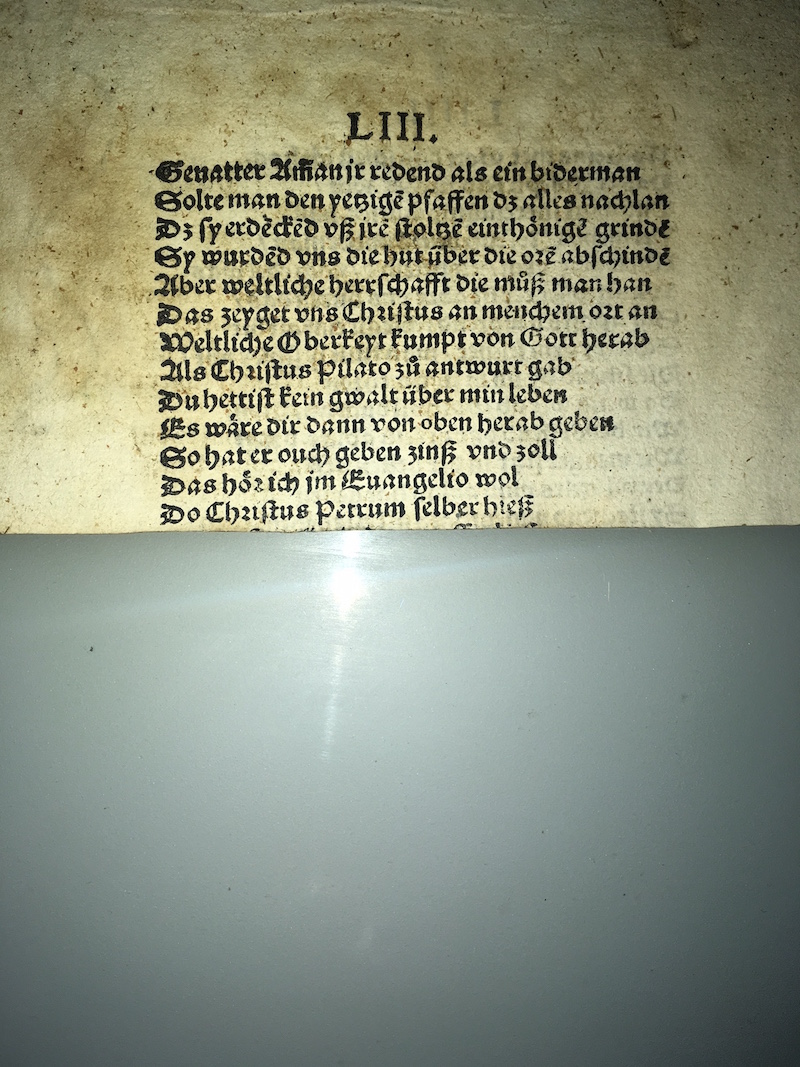 LIII.
Geuatter Am̄an jr redend als ein biderman
Solte man den yetzigē pfaffen dz alles nachlan
Dz sy erdēckēd vß jrē stoltzē einthönigē grindē
Sy wurdēd vns die hut über die orē abschindē
Aber weltliche herrschafft die můß man han
Das zeyget vns Christus an menchem ort an
Weltliche Oberkeyt kumpt von Gott herab
Als Christus Pilato zů antwurt gab
Du hettist kein gwalt über min leben
Es wäre dir dann von oben herab geben
So hat er ouch geben zinß vnd zoll
Das hör ich jm Euangelio wol
Do Christus Petrum selber hieß